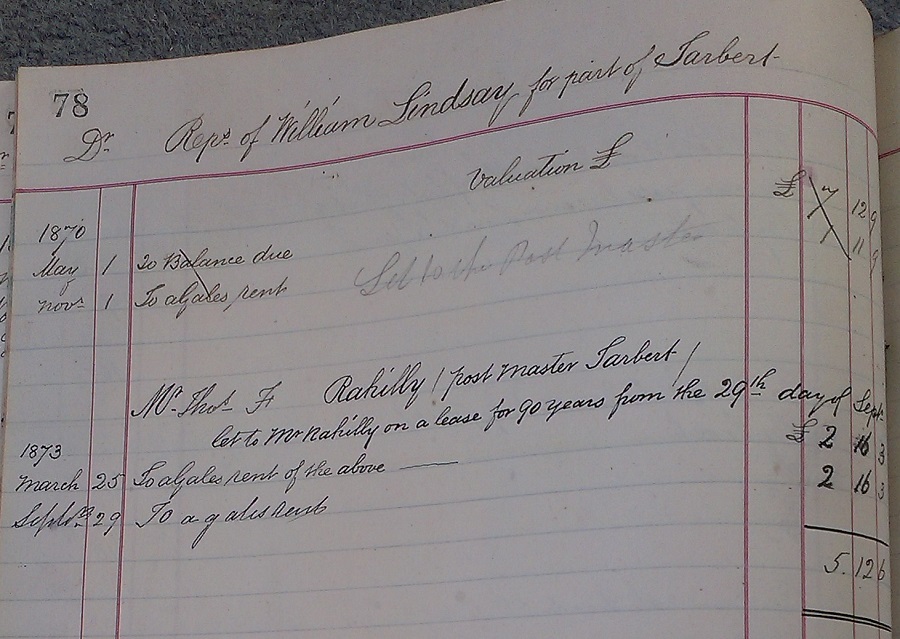 78
Dr Reps of William Lindsay for part of Tarbert
Valuation £
1870 £ 7 12 9
May 1 To Balance due 11 9
Novr 1 To a gales rent Let to the Post Master
Mr Thos F Rahilly / post Master Tarbert /
let to Mr Rahilly on a lease for 90 years from the 29th day of Sept.
1873 £ 2 16 3
March 25 To a gales rent of the above — 2 16 3
Septbr 29 To a gales rent
5. 12 6